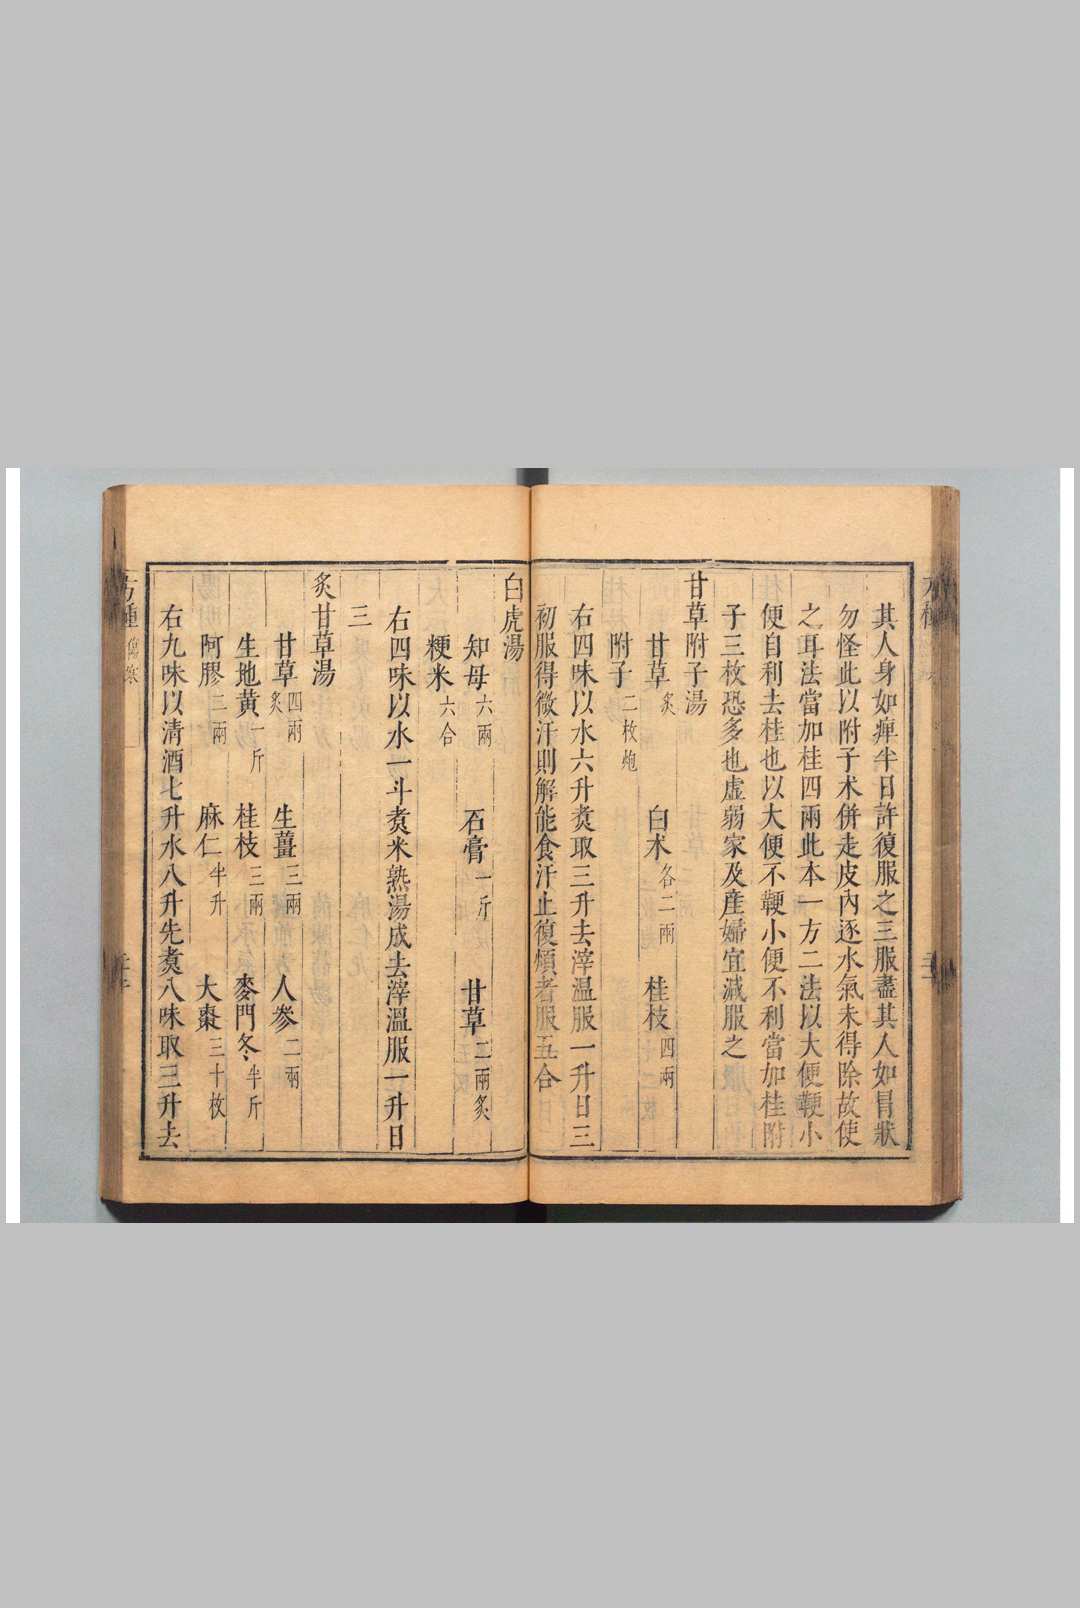 其人身如痺半日許復服之三服盡其人如冒狀
勿怪此以附子术併走皮內逐水氣未得除故使
之耳法當加桂四兩此本一方二法以大便鞕小
便自利去桂也以大便不鞕小便不利當加桂附
子三枚恐多也虛弱家及產婦宜減服之
甘草附子湯
甘草炙 白术各二兩 桂枝四兩
附子二枚炮
右四味以水六升煑取三升去滓温服一升日三
初服得微汗則解能食汗止復煩者服五合
白虎湯
知母六兩 石膏一斤 甘草二兩炙
粳米六合
右四味以水一斗煑米熟湯成去滓溫服一升日
三
炙甘草湯
甘草四兩炙 生薑三兩 人參二兩
生地黃一斤 桂枝三兩 麥門冬半斤
阿膠二兩 麻仁半升 大棗三十枚
右九味以清酒七升水八升先煑八味取三升去